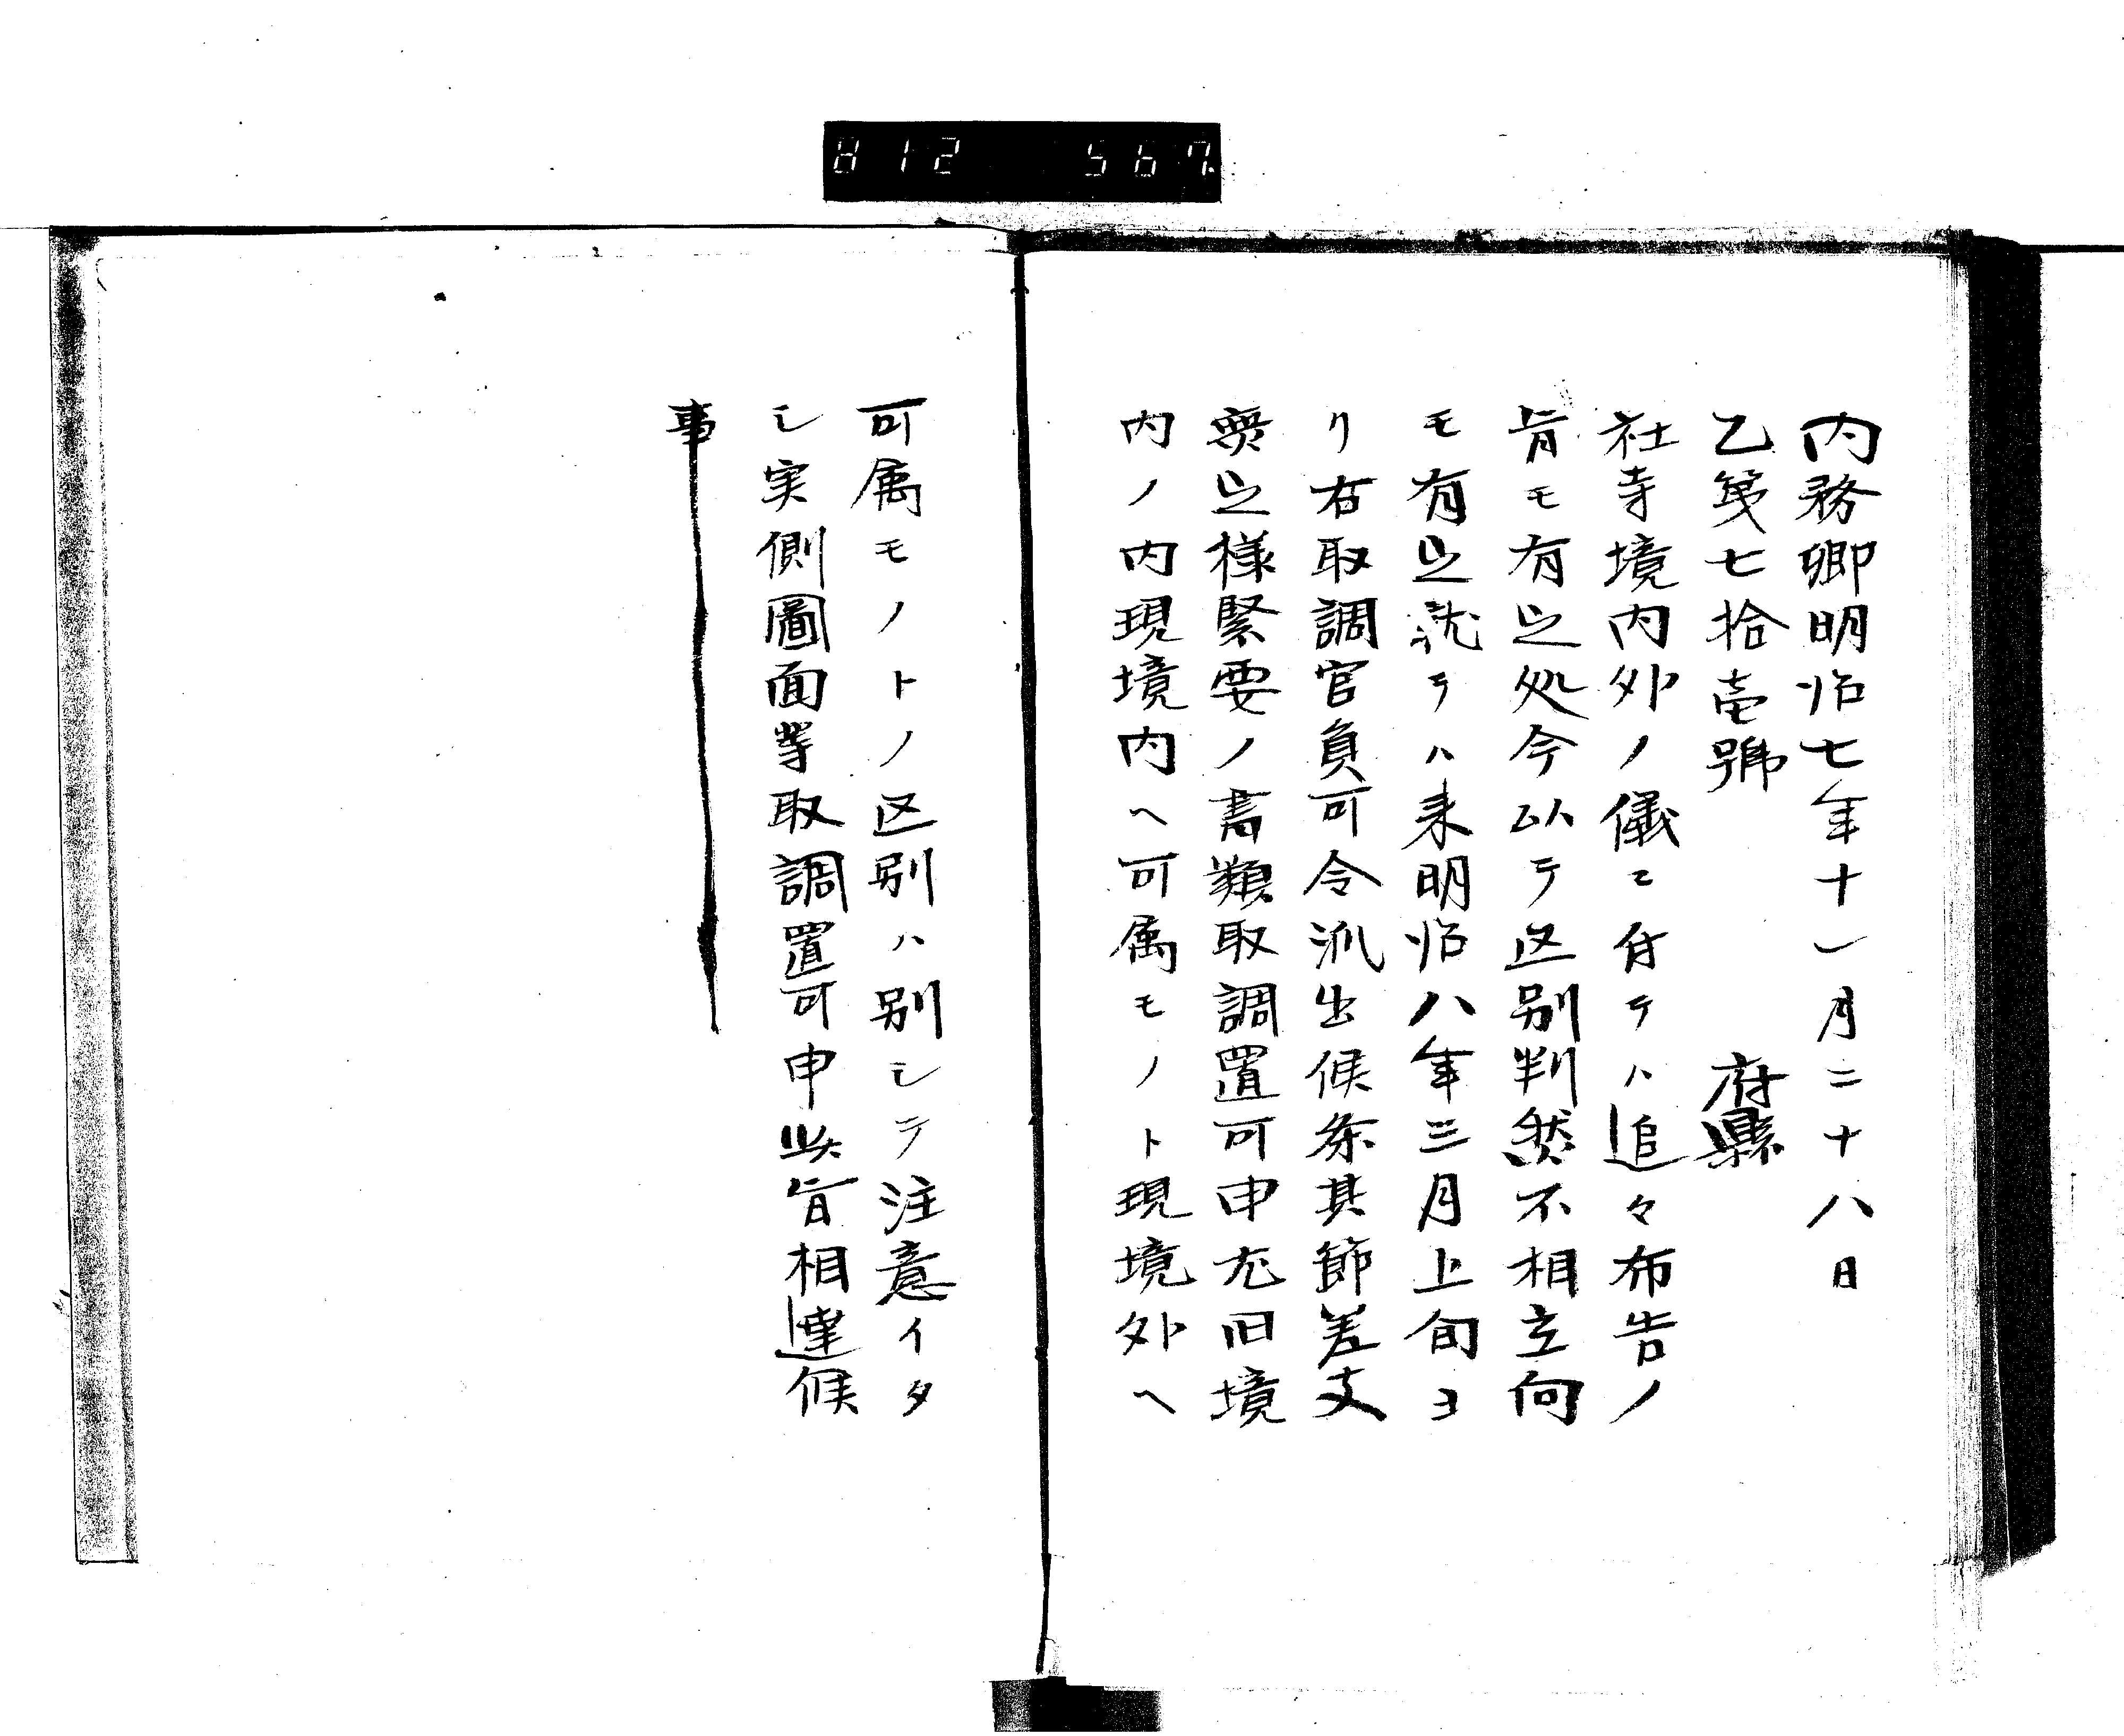 812 567
内務卿明治七年十一月二十八日
乙第七拾壱號 府縣
社寺境内外ノ儀ニ付テハ追々布告ノ
旨モ有之処今以テ区別判然不相立向
モ有之就テハ来明治八年三月上旬ヨ
リ右取調官員可令派出候条其節差支
無之様緊要ノ書類取調置可申尤旧境
内ノ内現境内ヘ可属モノト現境外ヘ
可属モノトノ区別ハ別シテ注意イタ
シ実側圖面等取調置可申此旨相達候
事